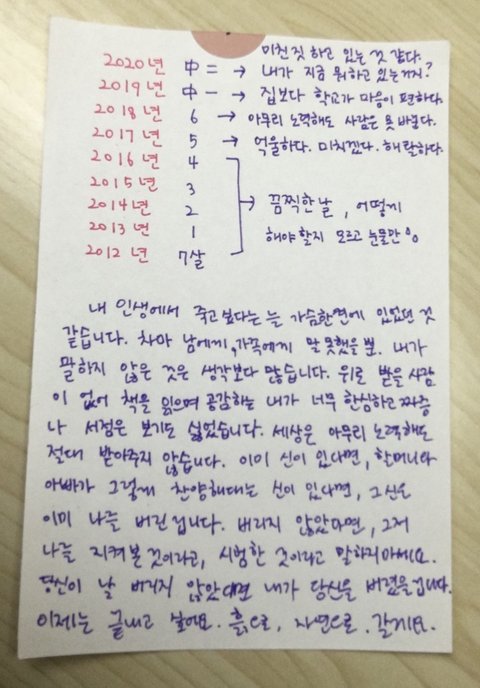 미친 짓 하고 있는 것 같다.
2020년 中二 → 내가 지금 뭐하고 있는거지?
2019년 中一 → 집보다 학교가 마음이 편하다.
2018년 6 → 아무리 노력해도 사람은 못 바꾼다.
2017년 5 → 억울하다. 미치겠다. 해탈하다.
2016년 4
2015년 3
2014년 2 → 끔찍한 날, 어떻게
2013년 1 해야할지 모르고 눈물만
2012년 7살
내 인생에서 죽고싶다는 늘 가슴한편에 있었던 것
같습니다. 차마 남에게, 가족에게 말 못했을 뿐. 내가
말하지 않은 것은 생각보다 많습니다. 위로 받을 사람
이 없어 책을 읽으며 공감하는 내가 너무 한심하고 짜증
나 서점은 보기도 싫었습니다. 세상은 아무리 노력해도
절대 받아주지 않습니다. 이미 신이 있다면, 할머니와
아빠가 그렇게 찬양해대는 신이 있다면, 그 신은
이미 나를 버린 겁니다. 버리지 않았다면, 그저
나를 지켜본 것이라고, 시험한 것이라고 말하지마세요.
당신이 날 버리지 않았대면 내가 당신을 버렸을겁니다.
이제는 끝내고 싶어요. 흙으로, 자연으로. 갈게요.